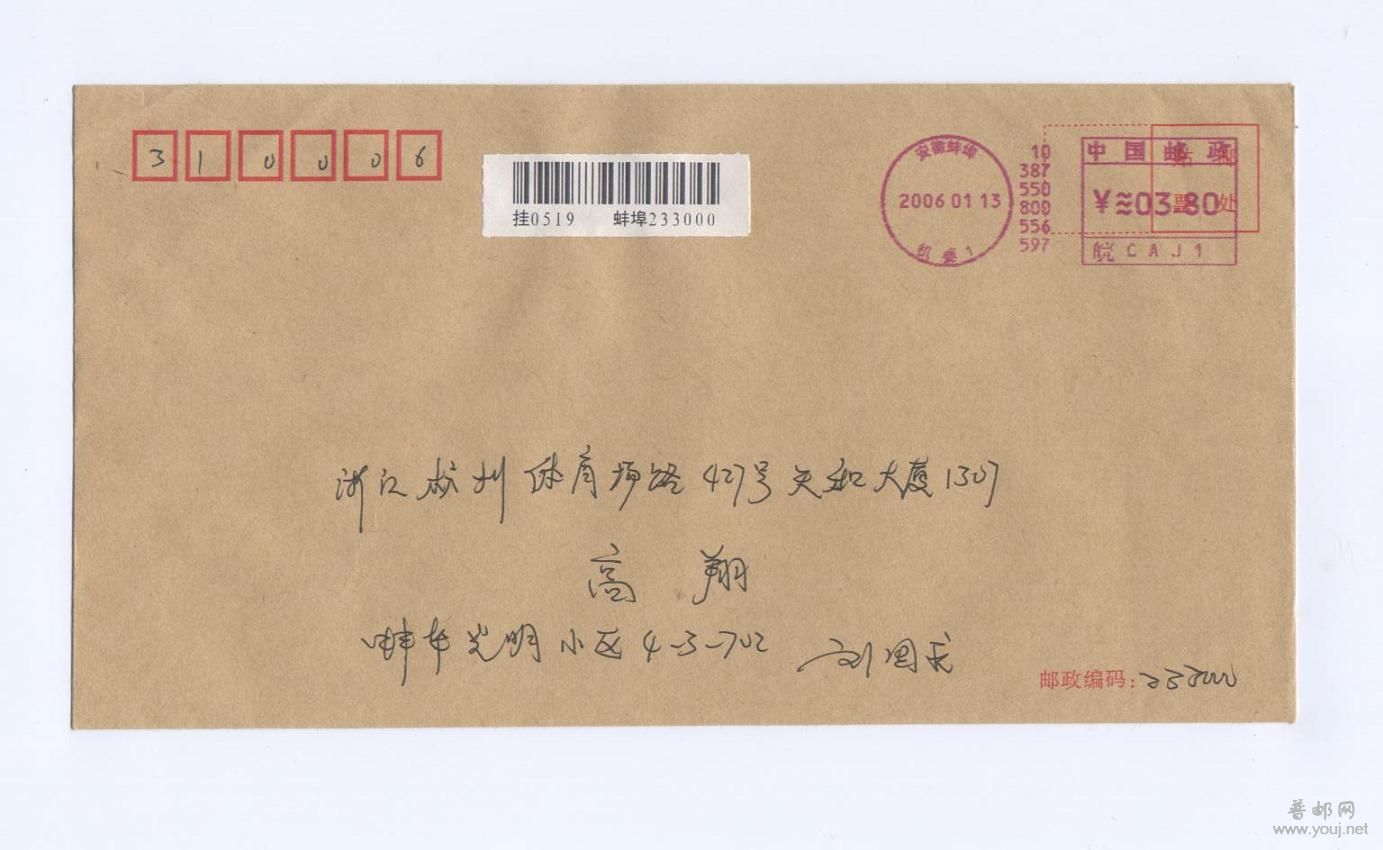 310006
挂0519 蚌埠233000
安徽蚌埠
2006 01 13
机要1
10
387
550
800
556
597
中国邮政
¥≋03.80
皖CAJ1
票 处
浙江杭州体育场路427号天和大厦1307
高翔
蚌埠光明小区4-3-702 刘国兵
邮政编码:233000
普邮网
www.youj.net